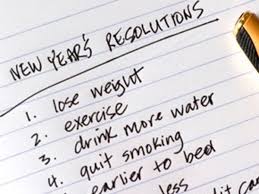 NEW YEAR'S RESOLUTIONS
1. lose weight
2. exercise
3. drink more water
4. quit smoking
earlier to bed
less